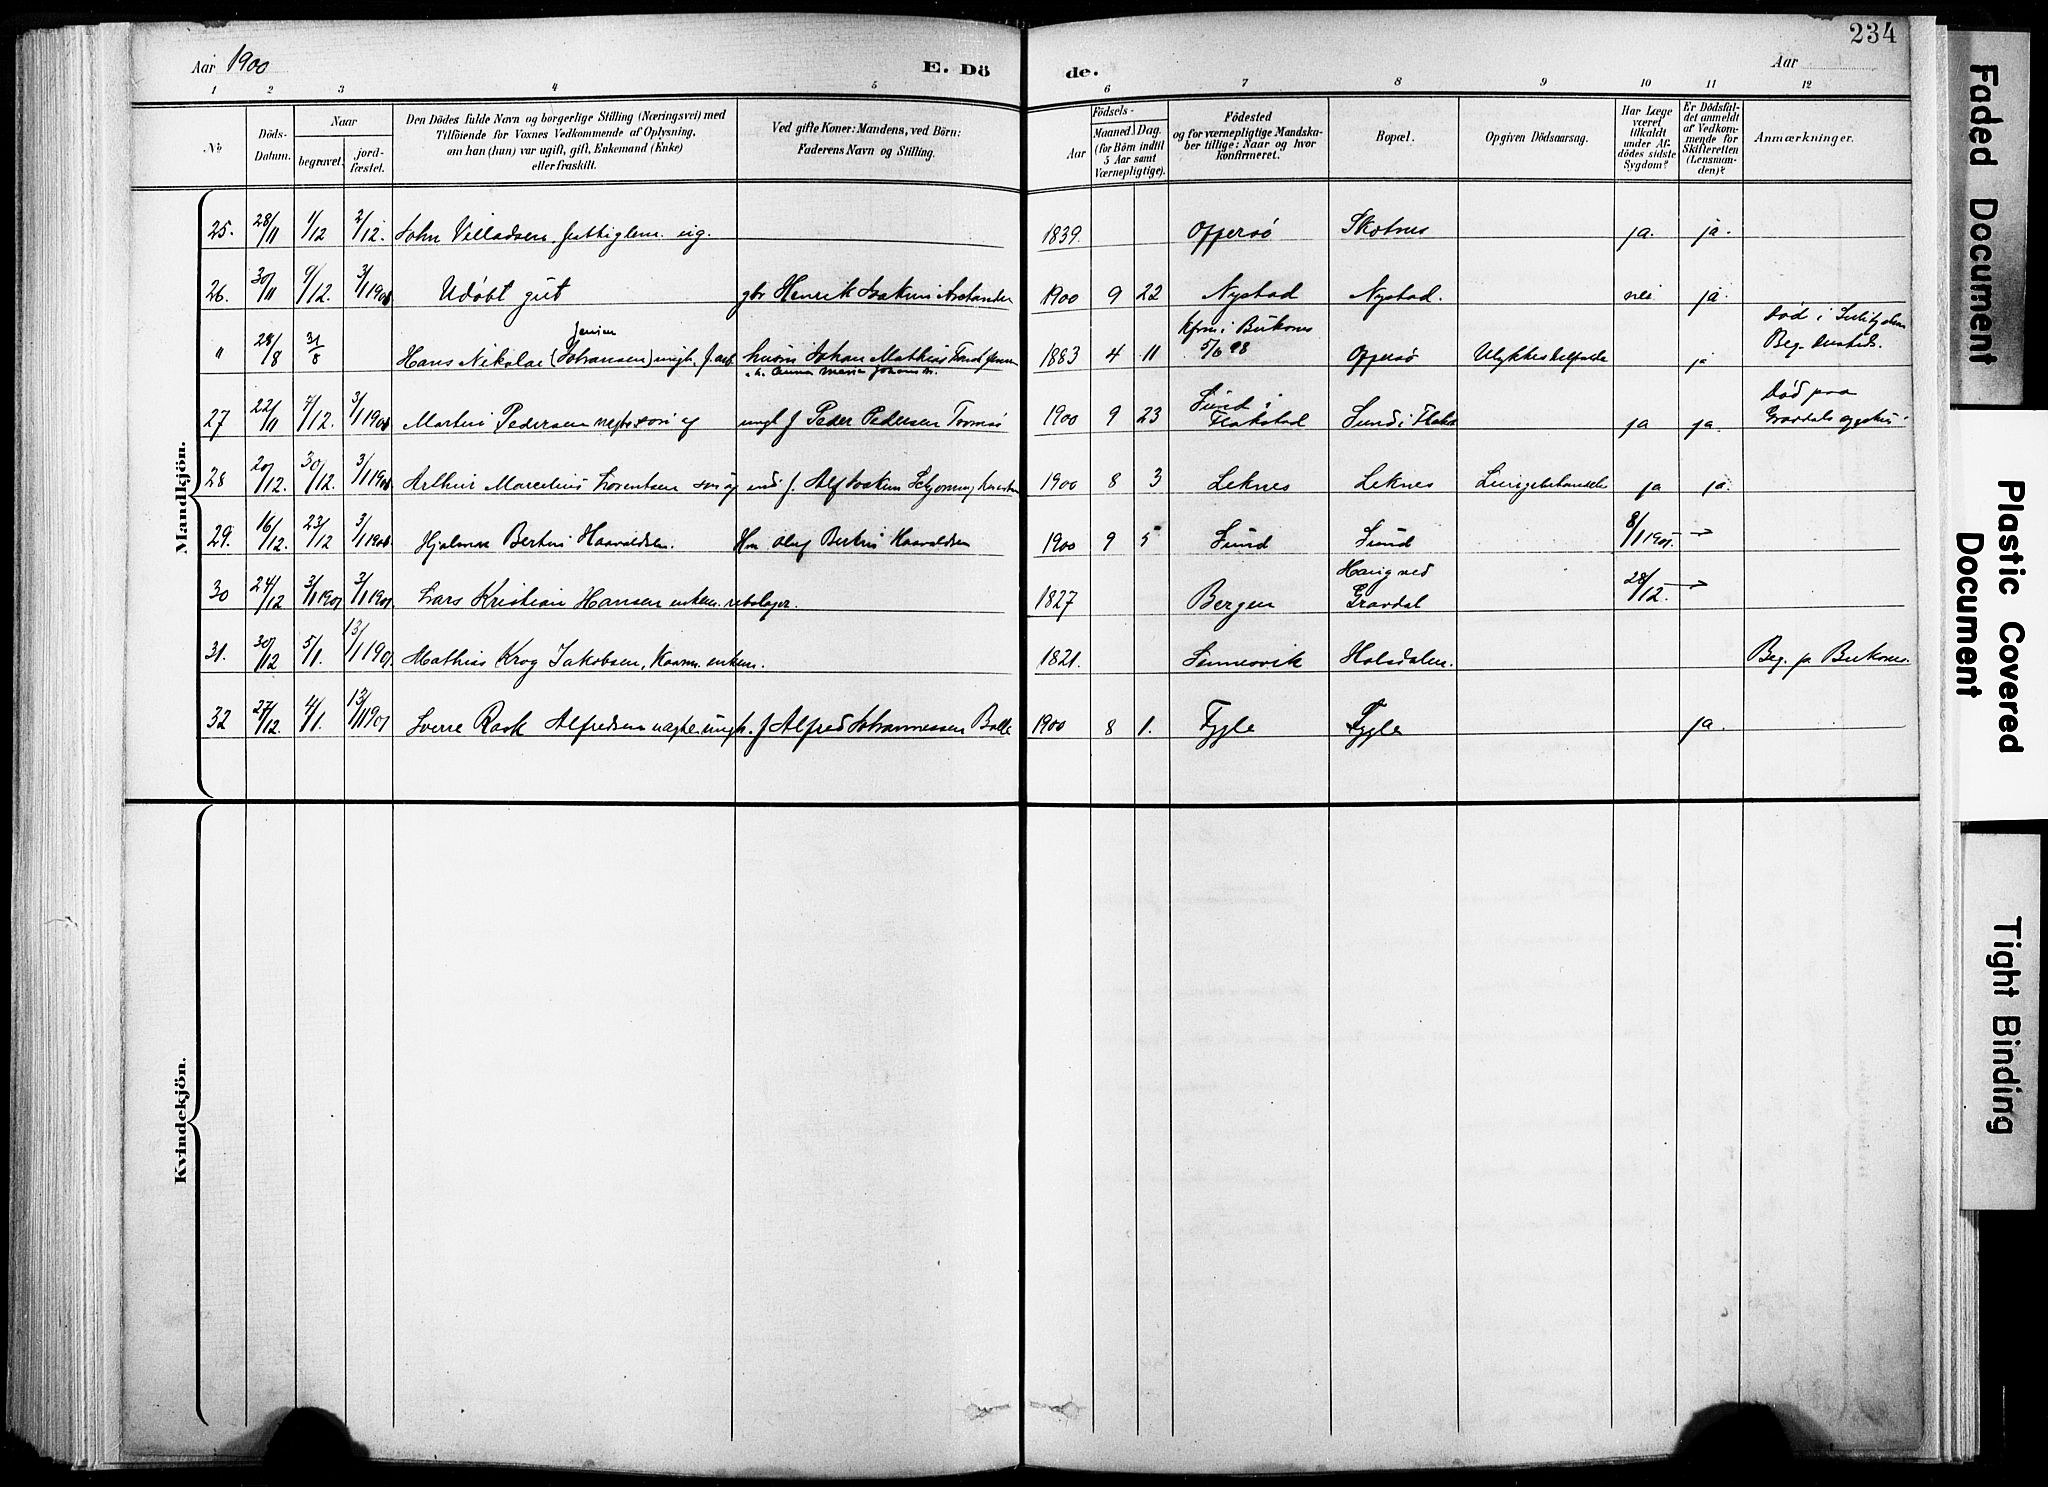 234
Aar 1900
E. Dö de.
Aar
1 2 3 4 5 6 7 8 9 10 11 12
No
Döds-Datum.
Naar
begravet.
jord-fæstet.
Den Dödes fulde Navn og borgerlige Stilling (Næringsvei) med
Tilföiende for Voxnes Vedkommende af Oplysning,
om han (hun) var ugift, gift, Enkemand (Enke)
eller fraskilt.
Ved gifte Koner: Mandens, ved Börn:
Faderens Navn og Stilling.
Födsels-
Aar
Maaned Dag.
(for Börn indtil
5 Aar samt
Værnepligtige).
Födested
og for værnepligtige Mandska-
ber tillige: Naar og hvor
konfirmeret.
Bopæl.
Opgiven Dödsaarsag.
Har Læge
været
tilkaldt
under Af-
dödes sidste
Sygdom?
Er Dödsfal-
det anmeldt
af Vedkom-
mende for
Skifteretten
(Lensman-
den)?
Anmærkninger.
Mandkjön.
25. 28/11 1/12 2/12. John Villadsen 1839. Offersö Skotnes ja. ja.
26. 30/11 9/12. 3/1 1901 Udöbt gut Henrik 1900 9 22 Nystad Nystad. nei ja.
" 28/8 31/8 Hans Nikolai (Johansen) Jensen Johan Mathias 1883 4 11 Kfrm i Buksnes 5/6 98 Offersö ja Död i
Beg.
27 22/11 4/12. 3/1 1901 Martin Pedersen sön af f Peder Pedersen 1900 9 23 Sund i Flakstad Sund i ja ja. Död paa
28 20/12. 30/12. 3/1 1901 Arthur Marcelius Lorentsen 1900 8 3 Leknes Leknes ja ja.
29. 16/12. 23/12 3/1 1901 Hjalmar Bertin Haavaldsen. Olaf Bertin Haavaldsen 1900 9 5 Sund Sund 8/1 1901.
30 24/12 3/1 1901 3/1 1901 Lars Kristian Hansen enkem. 1827 Bergen Haug ved Gravdal 28/12.
31. 30/12 5/1. 13/1 1901. Mathias Krog Jakobsen, enkem. 1821. Sennesvik Holsdalen. Beg. p Buksnes.
32 27/12. 4/1. 13/1 1901 Sverre Rask Alfredsen f Alfred Johannessen Balle 1900 8 1. Fygle Fygle ja.
Kvindekjön.
Faded Document
Plastic Covered
Document
Tight Binding